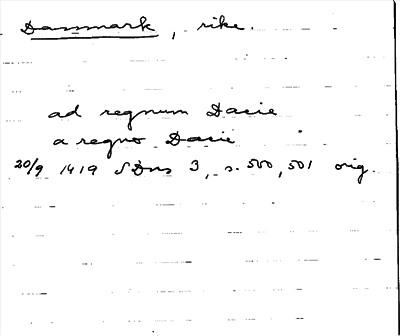 Danmark, rike.
ad regnum Dacie
a regno Dacie
20/9 1419 SDns 3, s. 500, 501 orig.